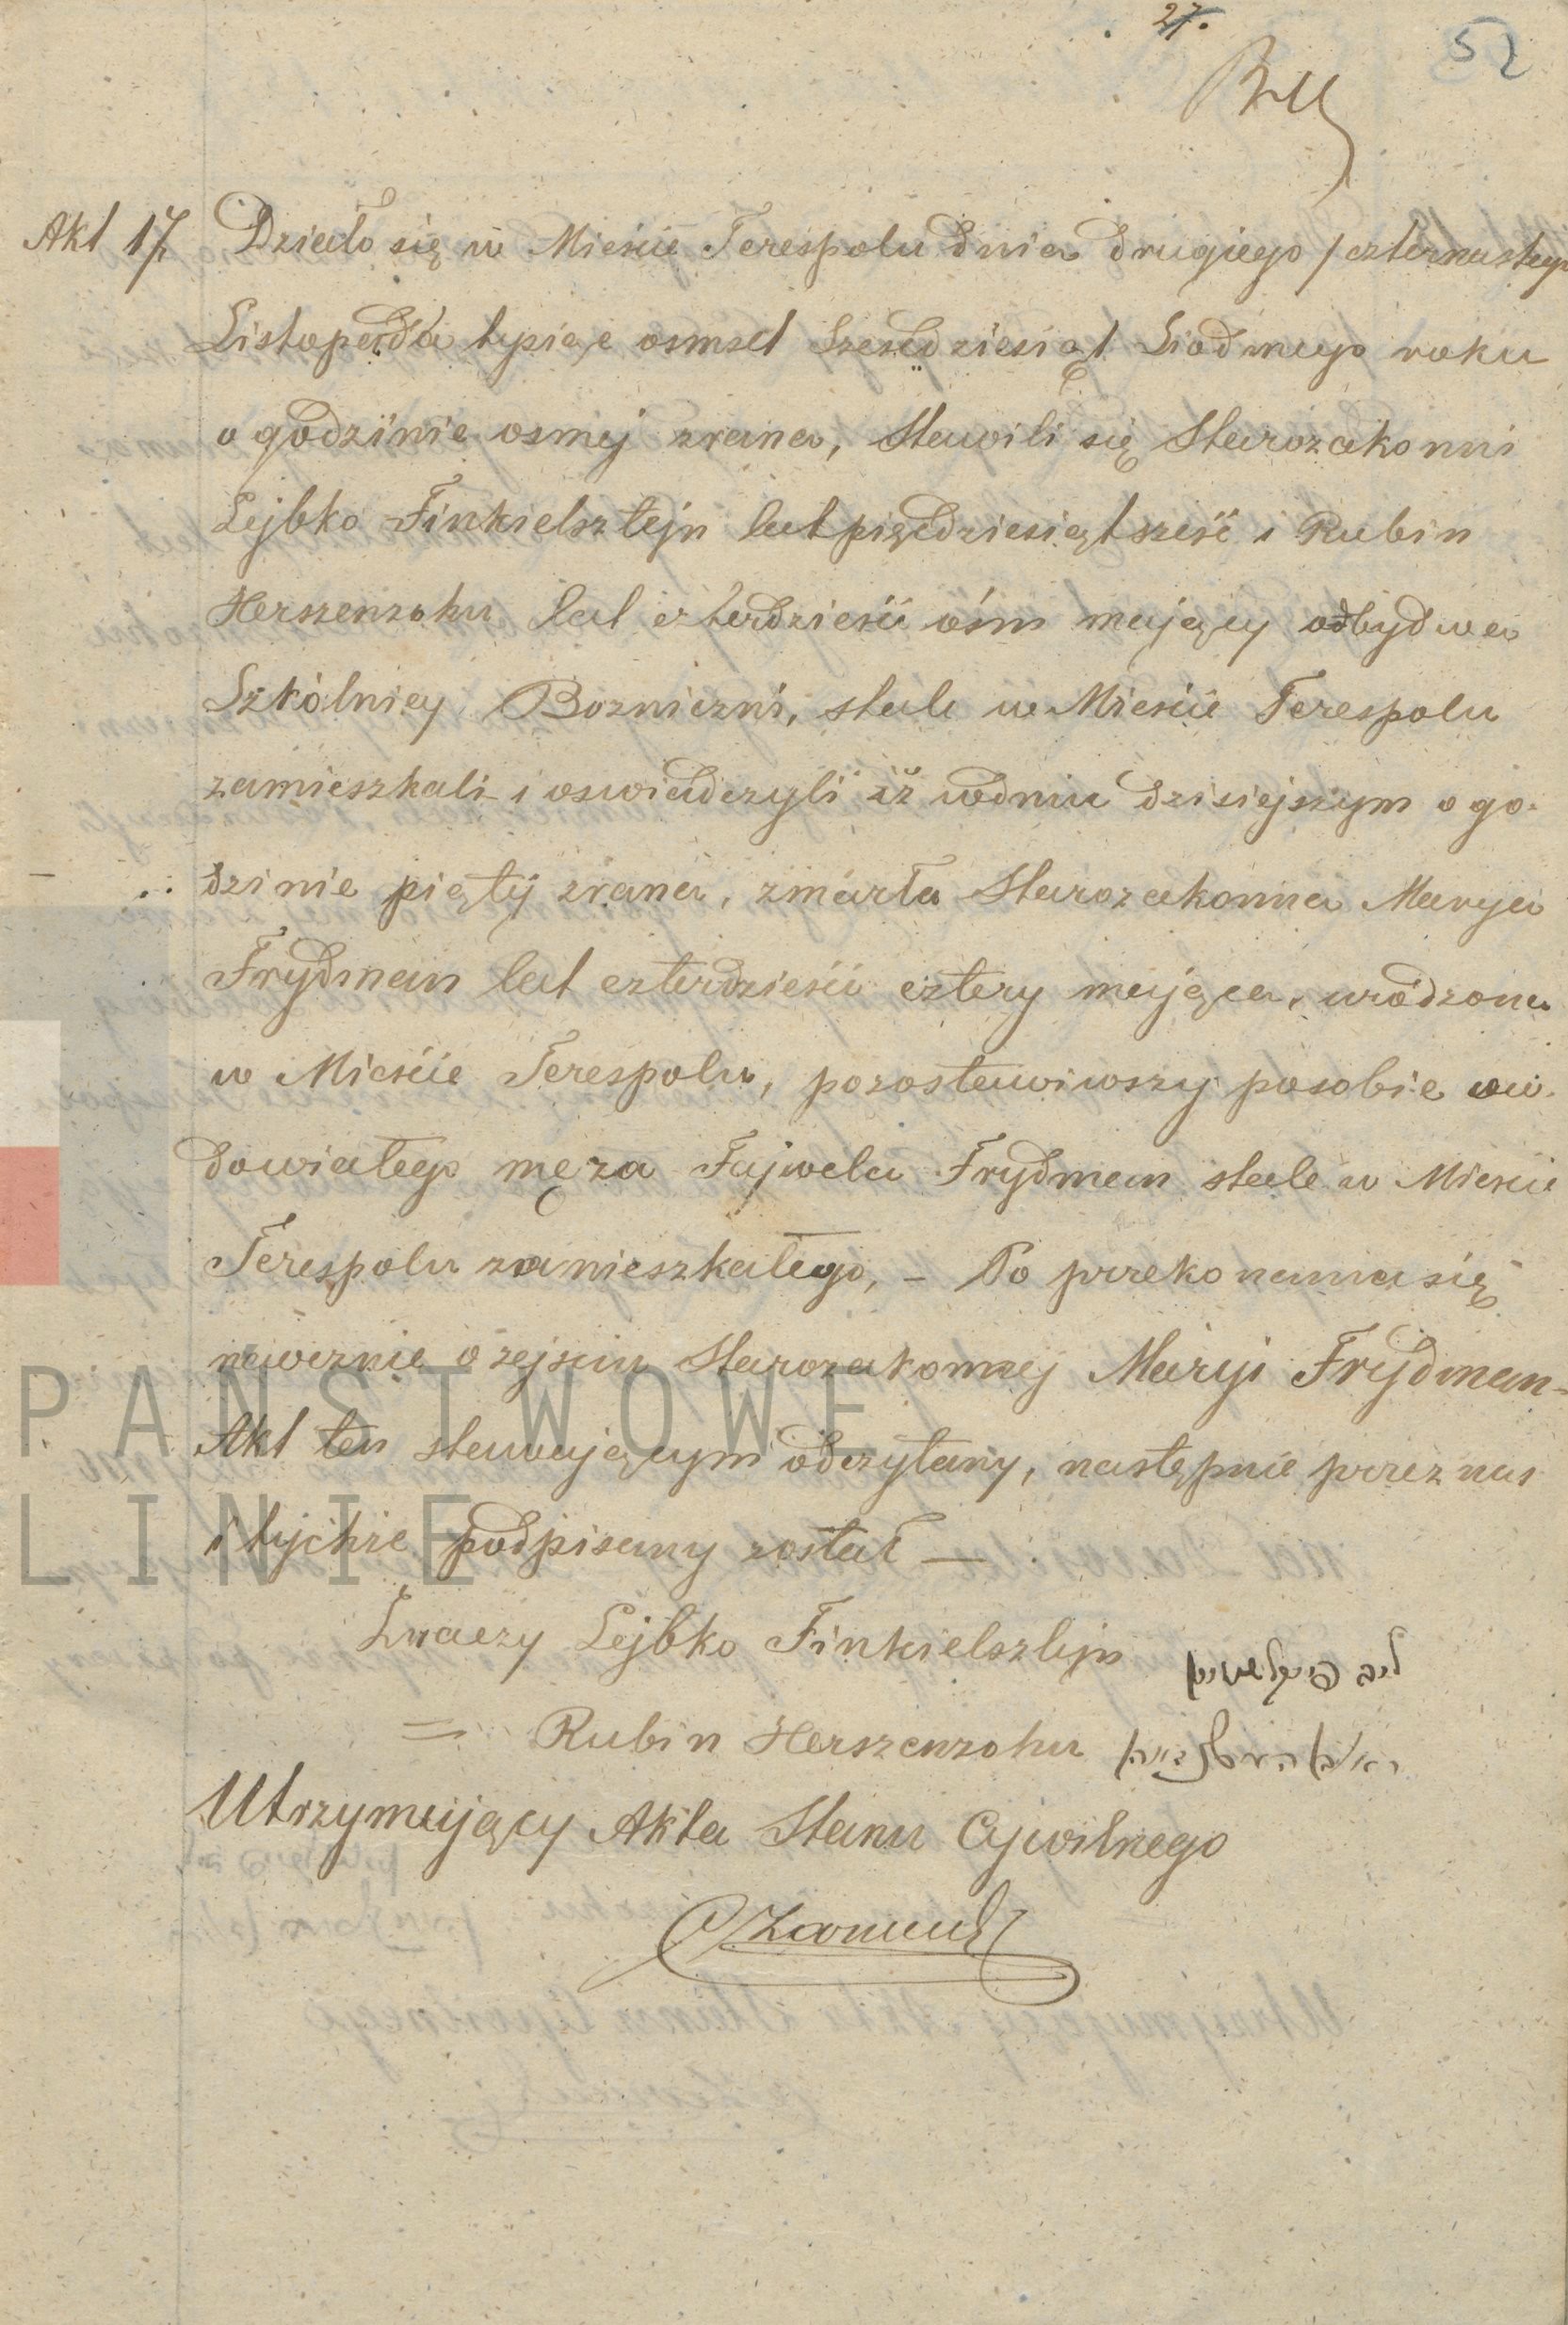 27.
52
Akt 17 Działo się w Mieście Terespolu dnia drugiego / czternastego
Listopada tysiąc osmset Sześćdziesiąt Siodmego roku
o godzinie osmej zrana, Stawili się Starozakonni
Lejbko Finkielsztejn lat pięćdziesiąt sześć i Rubin
Herszenzohn lat czterdzieści ośm mający odbydwa
Szkólnicy Bozniczni, stale w Mieście Terespolu
zamieszkali i oswiadczyli iż wdniu dzisiejszym o go-
dzinie piąty zrana, zmarła Starozakonna Marya
Frydman lat czterdzieści cztery mająca, urodzona
w Mieście Terespolu, pozostawiwszy posobie ow-
dowiałego męza Fajwela Frydman stale w Mieście
Terespolu zamieszkałego, – Po przekonaniu się
naocznie o zejsciu Starozakonnej Maryi Frydman-
Akt ten stawającym odczytany, następnie przez nas
i tychże podpisany został —
Znaczy Lejbko Finkielsztejn ליב פינקלשטיין
= Rubin Herszenzohn
Utrzymujący Akta Stanu Cywilnego
PAŃSTWOWE
LINIE